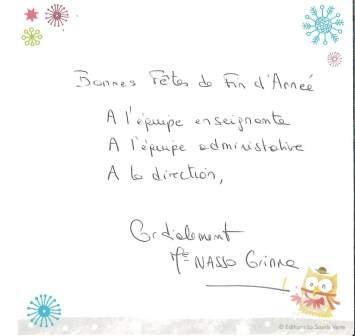 Bonnes Fêtes de Fin d'Anneé
A l'équipe enseignante
A l'équipe administrative
A la direction,
Cordialement
Me NASSO Corinne
© Editions La Souris Verte